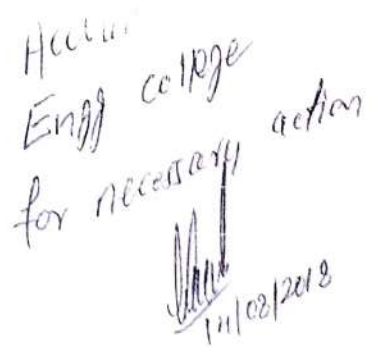 Engg college
for necessary action
14/02/2018